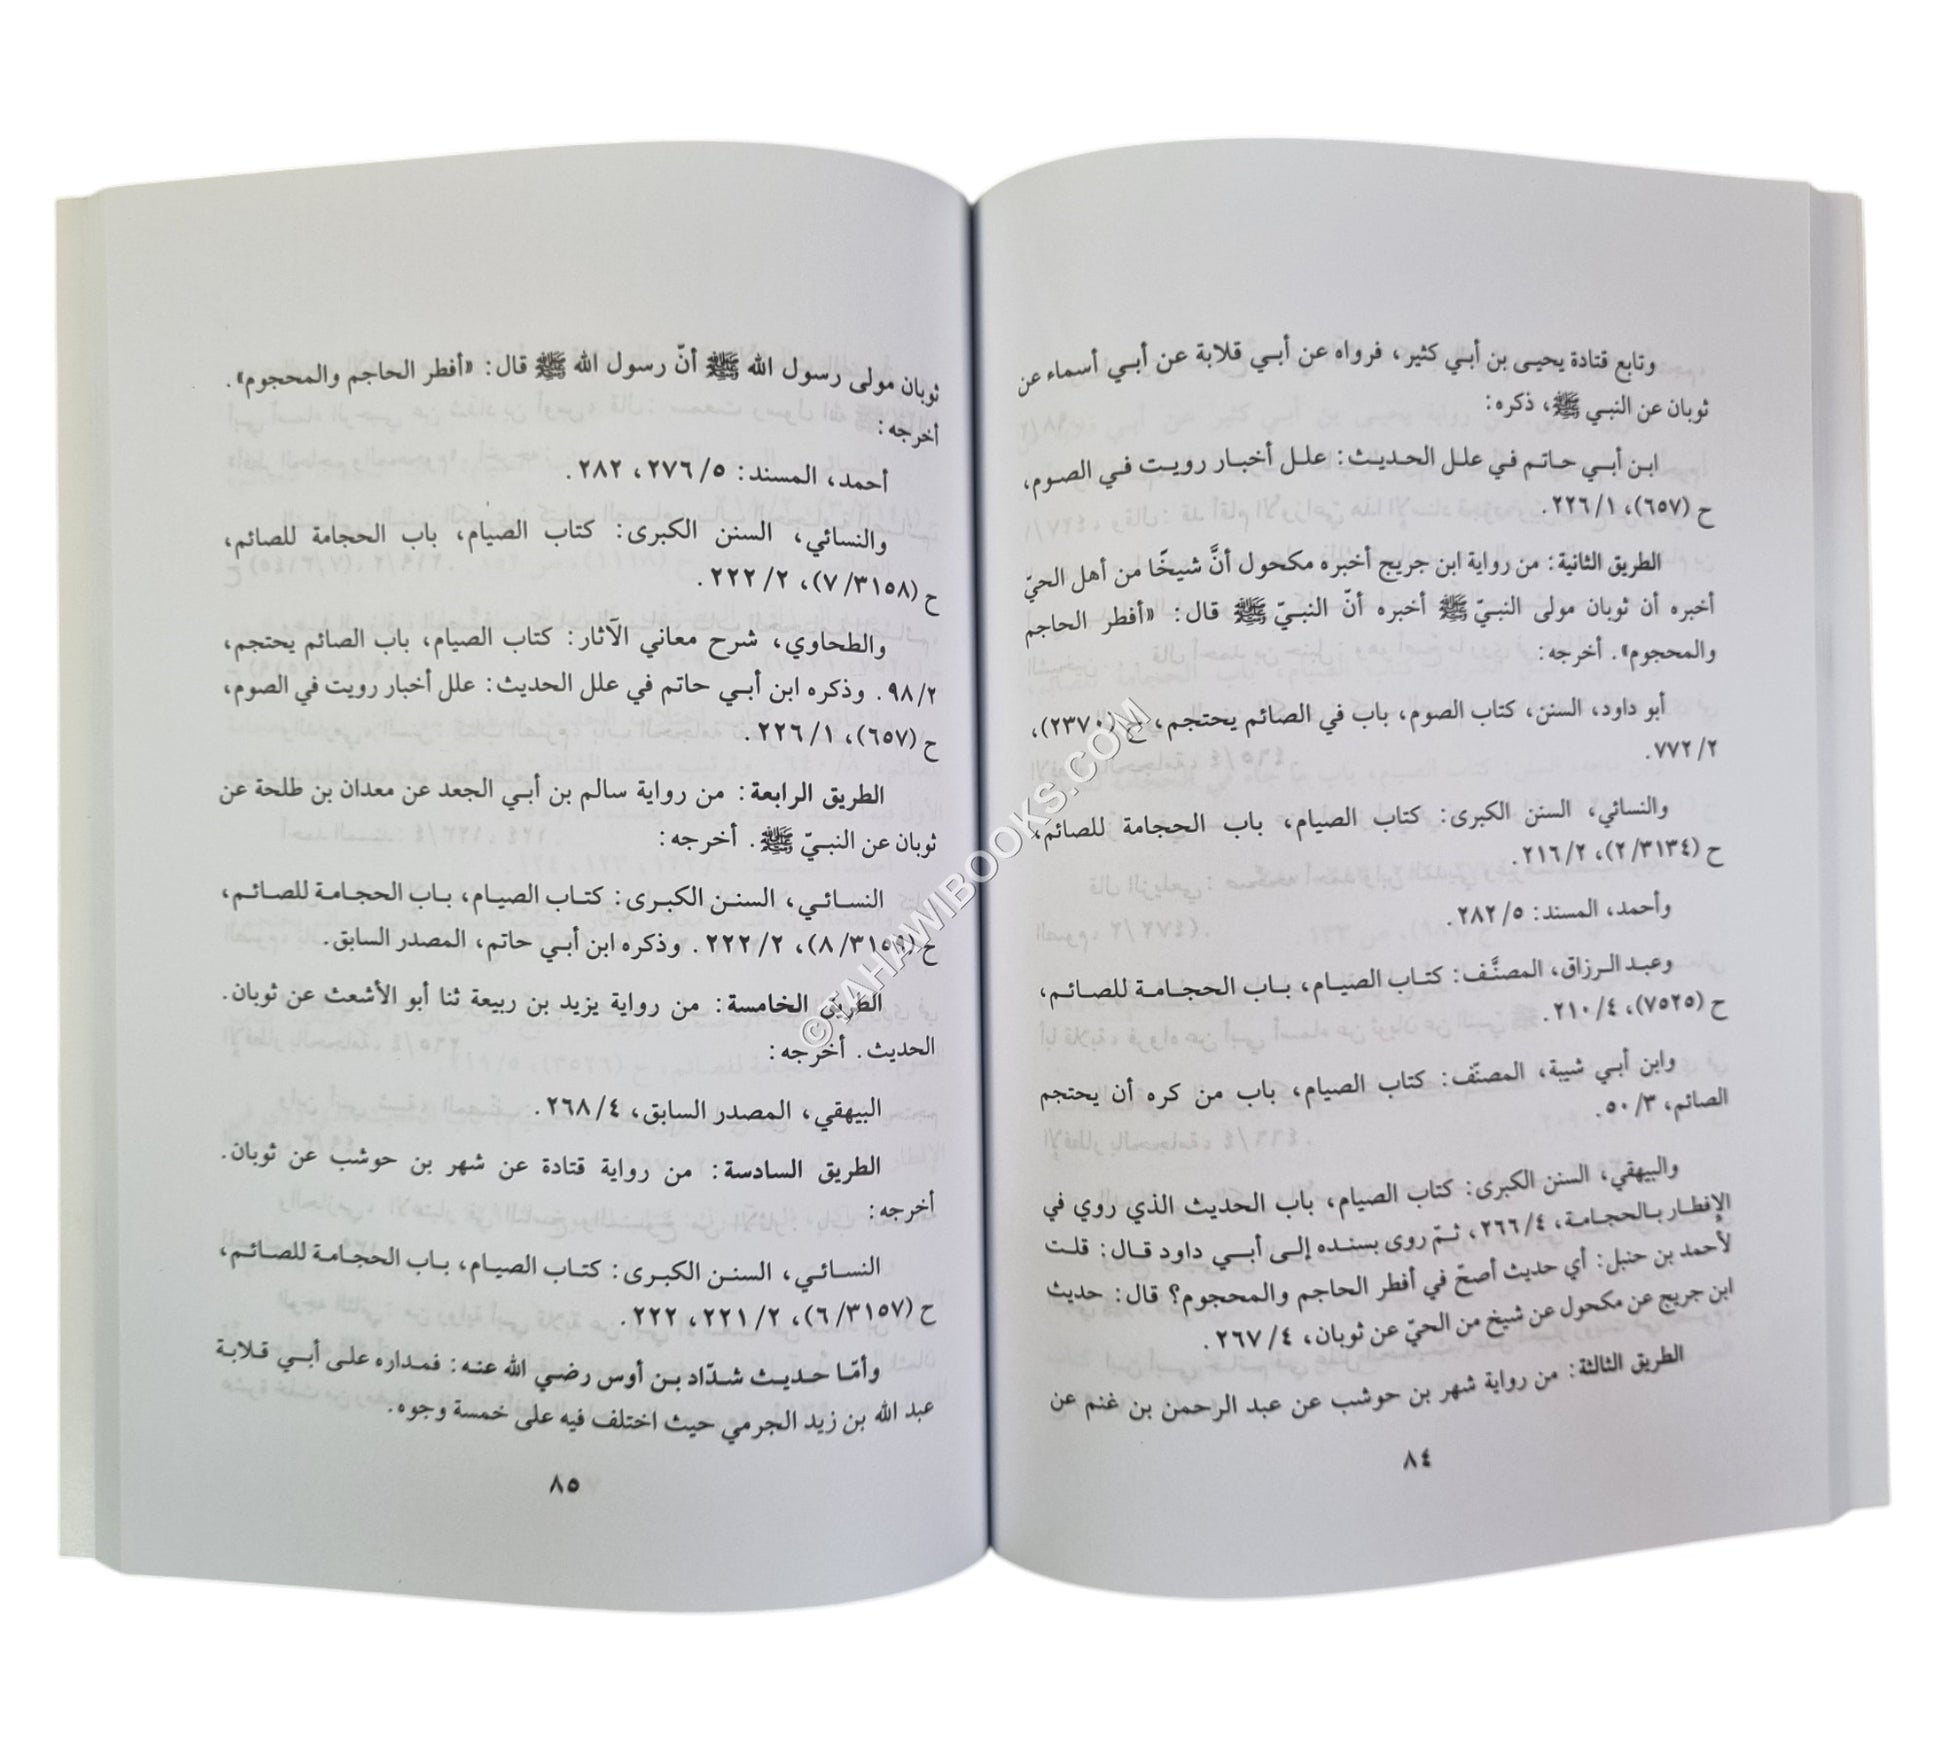 وتابع قتادة يحيى بن أبي كثير، فرواه عن أبي قلابة عن أبي أسماء عن
ثوبان عن النبي ﷺ، ذكره:
ابن أبي حاتم في علل الحديث: علل أخبار رويت في الصوم،
ح (٦٥٧)، ٢٢٦/١.
الطريق الثانية: من رواية ابن جريج أخبره مكحول أنَّ شيخًا من أهل الحيّ
أخبره أن ثوبان مولى النبيّ ﷺ أخبره أنّ النبيّ ﷺ قال: «أفطر الحاجم
والمحجوم». أخرجه:
أبو داود، السنن، كتاب الصوم، باب في الصائم يحتجم، ح (٢٣٧٠)،
٧٧٢/٢.
والنسائي، السنن الكبرى: كتاب الصيام، باب الحجامة للصائم،
ح (٢/٣١٣٤)، ٢١٦/٢.
وأحمد، المسند: ٢٨٢/٥.
وعبد الرزاق، المصنَّف: كتاب الصيام، باب الحجامة للصائم،
ح (٧٥٢٥)، ٢١٠/٤.
وابن أبي شيبة، المصنّف: كتاب الصيام، باب من كره أن يحتجم
الصائم، ٥٠/٣.
والبيهقي، السنن الكبرى: كتاب الصيام، باب الحديث الذي روي في
الإفطار بالحجامة، ٢٦٦/٤، ثمّ روى بسنده إلى أبي داود قال: قلت
لأحمد بن حنبل: أي حديث أصحّ في أفطر الحاجم والمحجوم؟ قال: حديث
ابن جريج عن مكحول عن شيخ من الحيّ عن ثوبان، ٢٦٧/٤.
الطريق الثالثة: من رواية شهر بن حوشب عن عبد الرحمن بن غنم عن
٨٤
ثوبان مولى رسول الله ﷺ أنّ رسول الله ﷺ قال: «أفطر الحاجم والمحجوم».
أخرجه:
أحمد، المسند: ٢٧٦/٥، ٢٨٢.
والنسائي، السنن الكبرى: كتاب الصيام، باب الحجامة للصائم،
ح (٧/٣١٥٨)، ٢٢٢/٢.
والطحاوي، شرح معاني الآثار: كتاب الصيام، باب الصائم يحتجم،
٩٨/٢. وذكره ابن أبي حاتم في علل الحديث: علل أخبار رويت في الصوم،
ح (٦٥٧)، ٢٢٦/١.
الطريق الرابعة: من رواية سالم بن أبي الجعد عن معدان بن طلحة عن
ثوبان عن النبيّ ﷺ. أخرجه:
النسائي، السنن الكبرى: كتاب الصيام، باب الحجامة للصائم،
ح (٨/٣١٥٩)، ٢٢٢/٢. وذكره ابن أبي حاتم، المصدر السابق.
الطريق الخامسة: من رواية يزيد بن ربيعة ثنا أبو الأشعث عن ثوبان.
الحديث. أخرجه:
البيهقي، المصدر السابق، ٢٦٨/٤.
الطريق السادسة: من رواية قتادة عن شهر بن حوشب عن ثوبان.
أخرجه:
النسائي، السنن الكبرى: كتاب الصيام، باب الحجامة للصائم،
ح (٦/٣١٥٧)، ٢٢١/٢، ٢٢٢.
وأمّا حديث شدّاد بن أوس رضي الله عنه: فمداره على أبي قلابة
عبد الله بن زيد الجرمي حيث اختلف فيه على خمسة وجوه.
٨٥
©TAHAWIBOOKS.COM